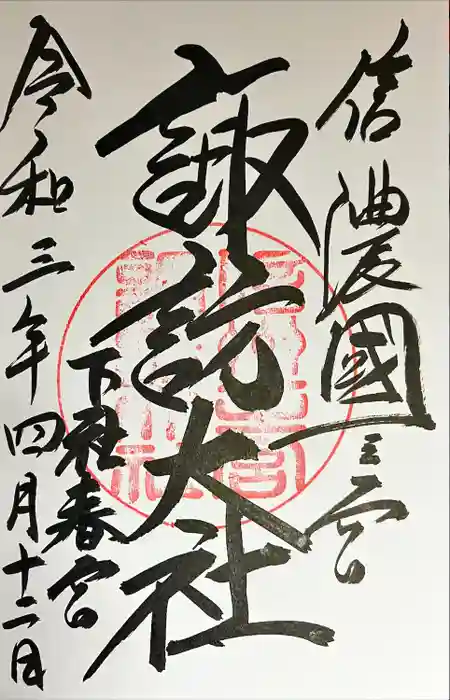 信濃國一之宮
諏訪大社
下社春宮
令和三年四月十二日